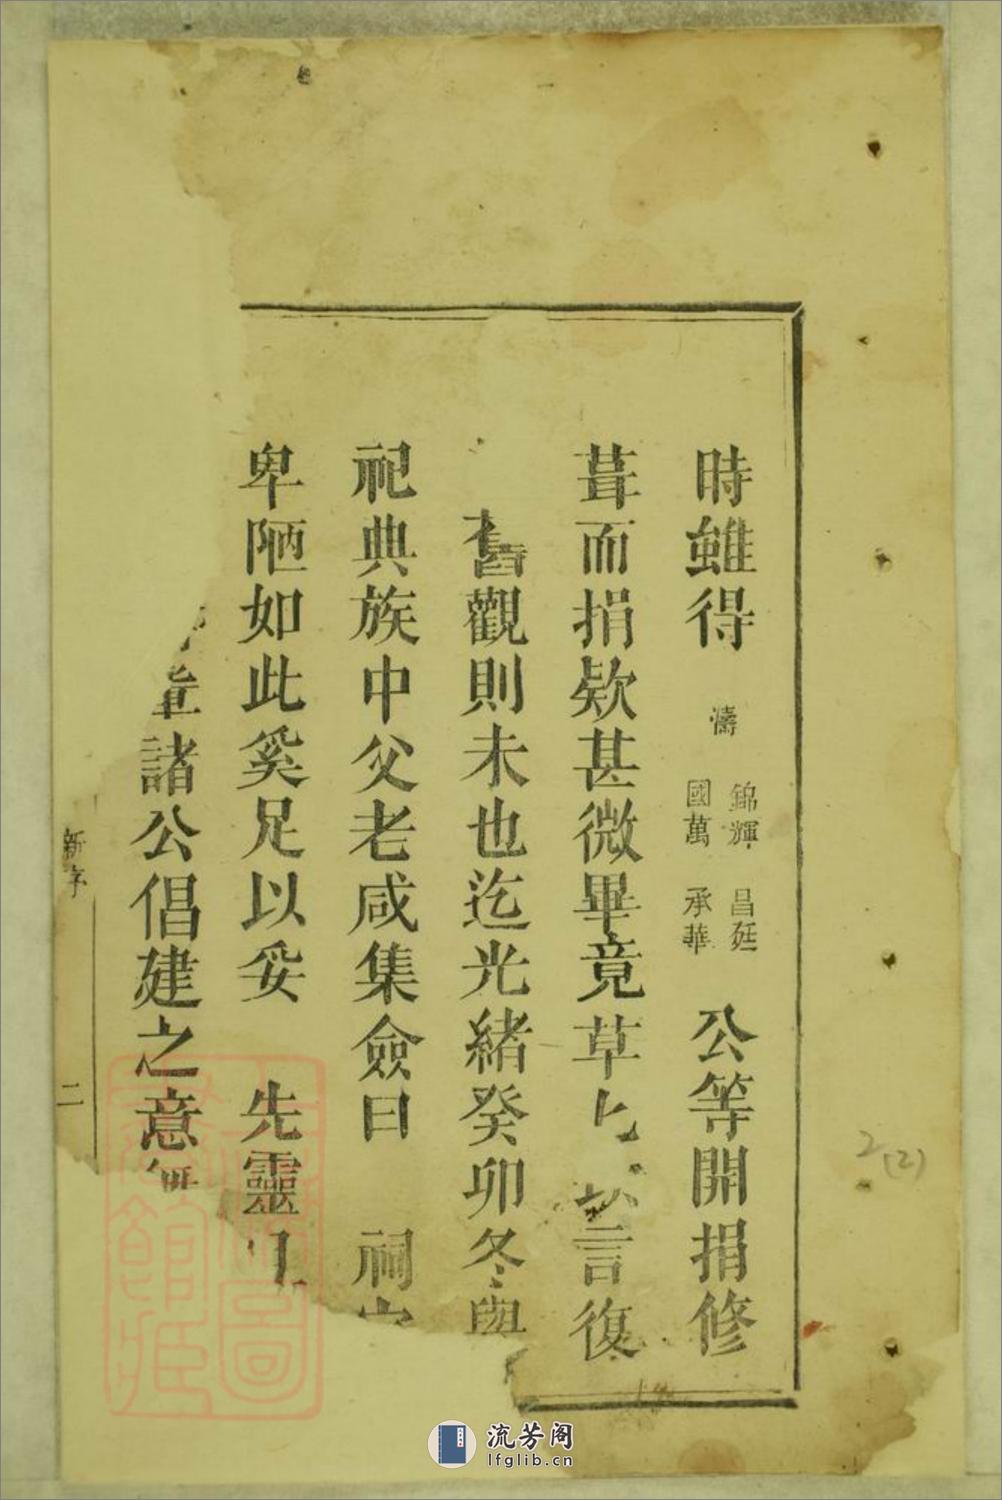 時雖得濤錦輝國萬昌廷承華公等開捐修
葺而捐欵甚微畢竟草言復
舊觀則未也迄光緒癸卯冬
祀典族中父老咸集僉曰祠
卑陋如此奚足以妥先靈
諸公倡建之意
新序
二
2(2)
流芳阁
lfglib.cn